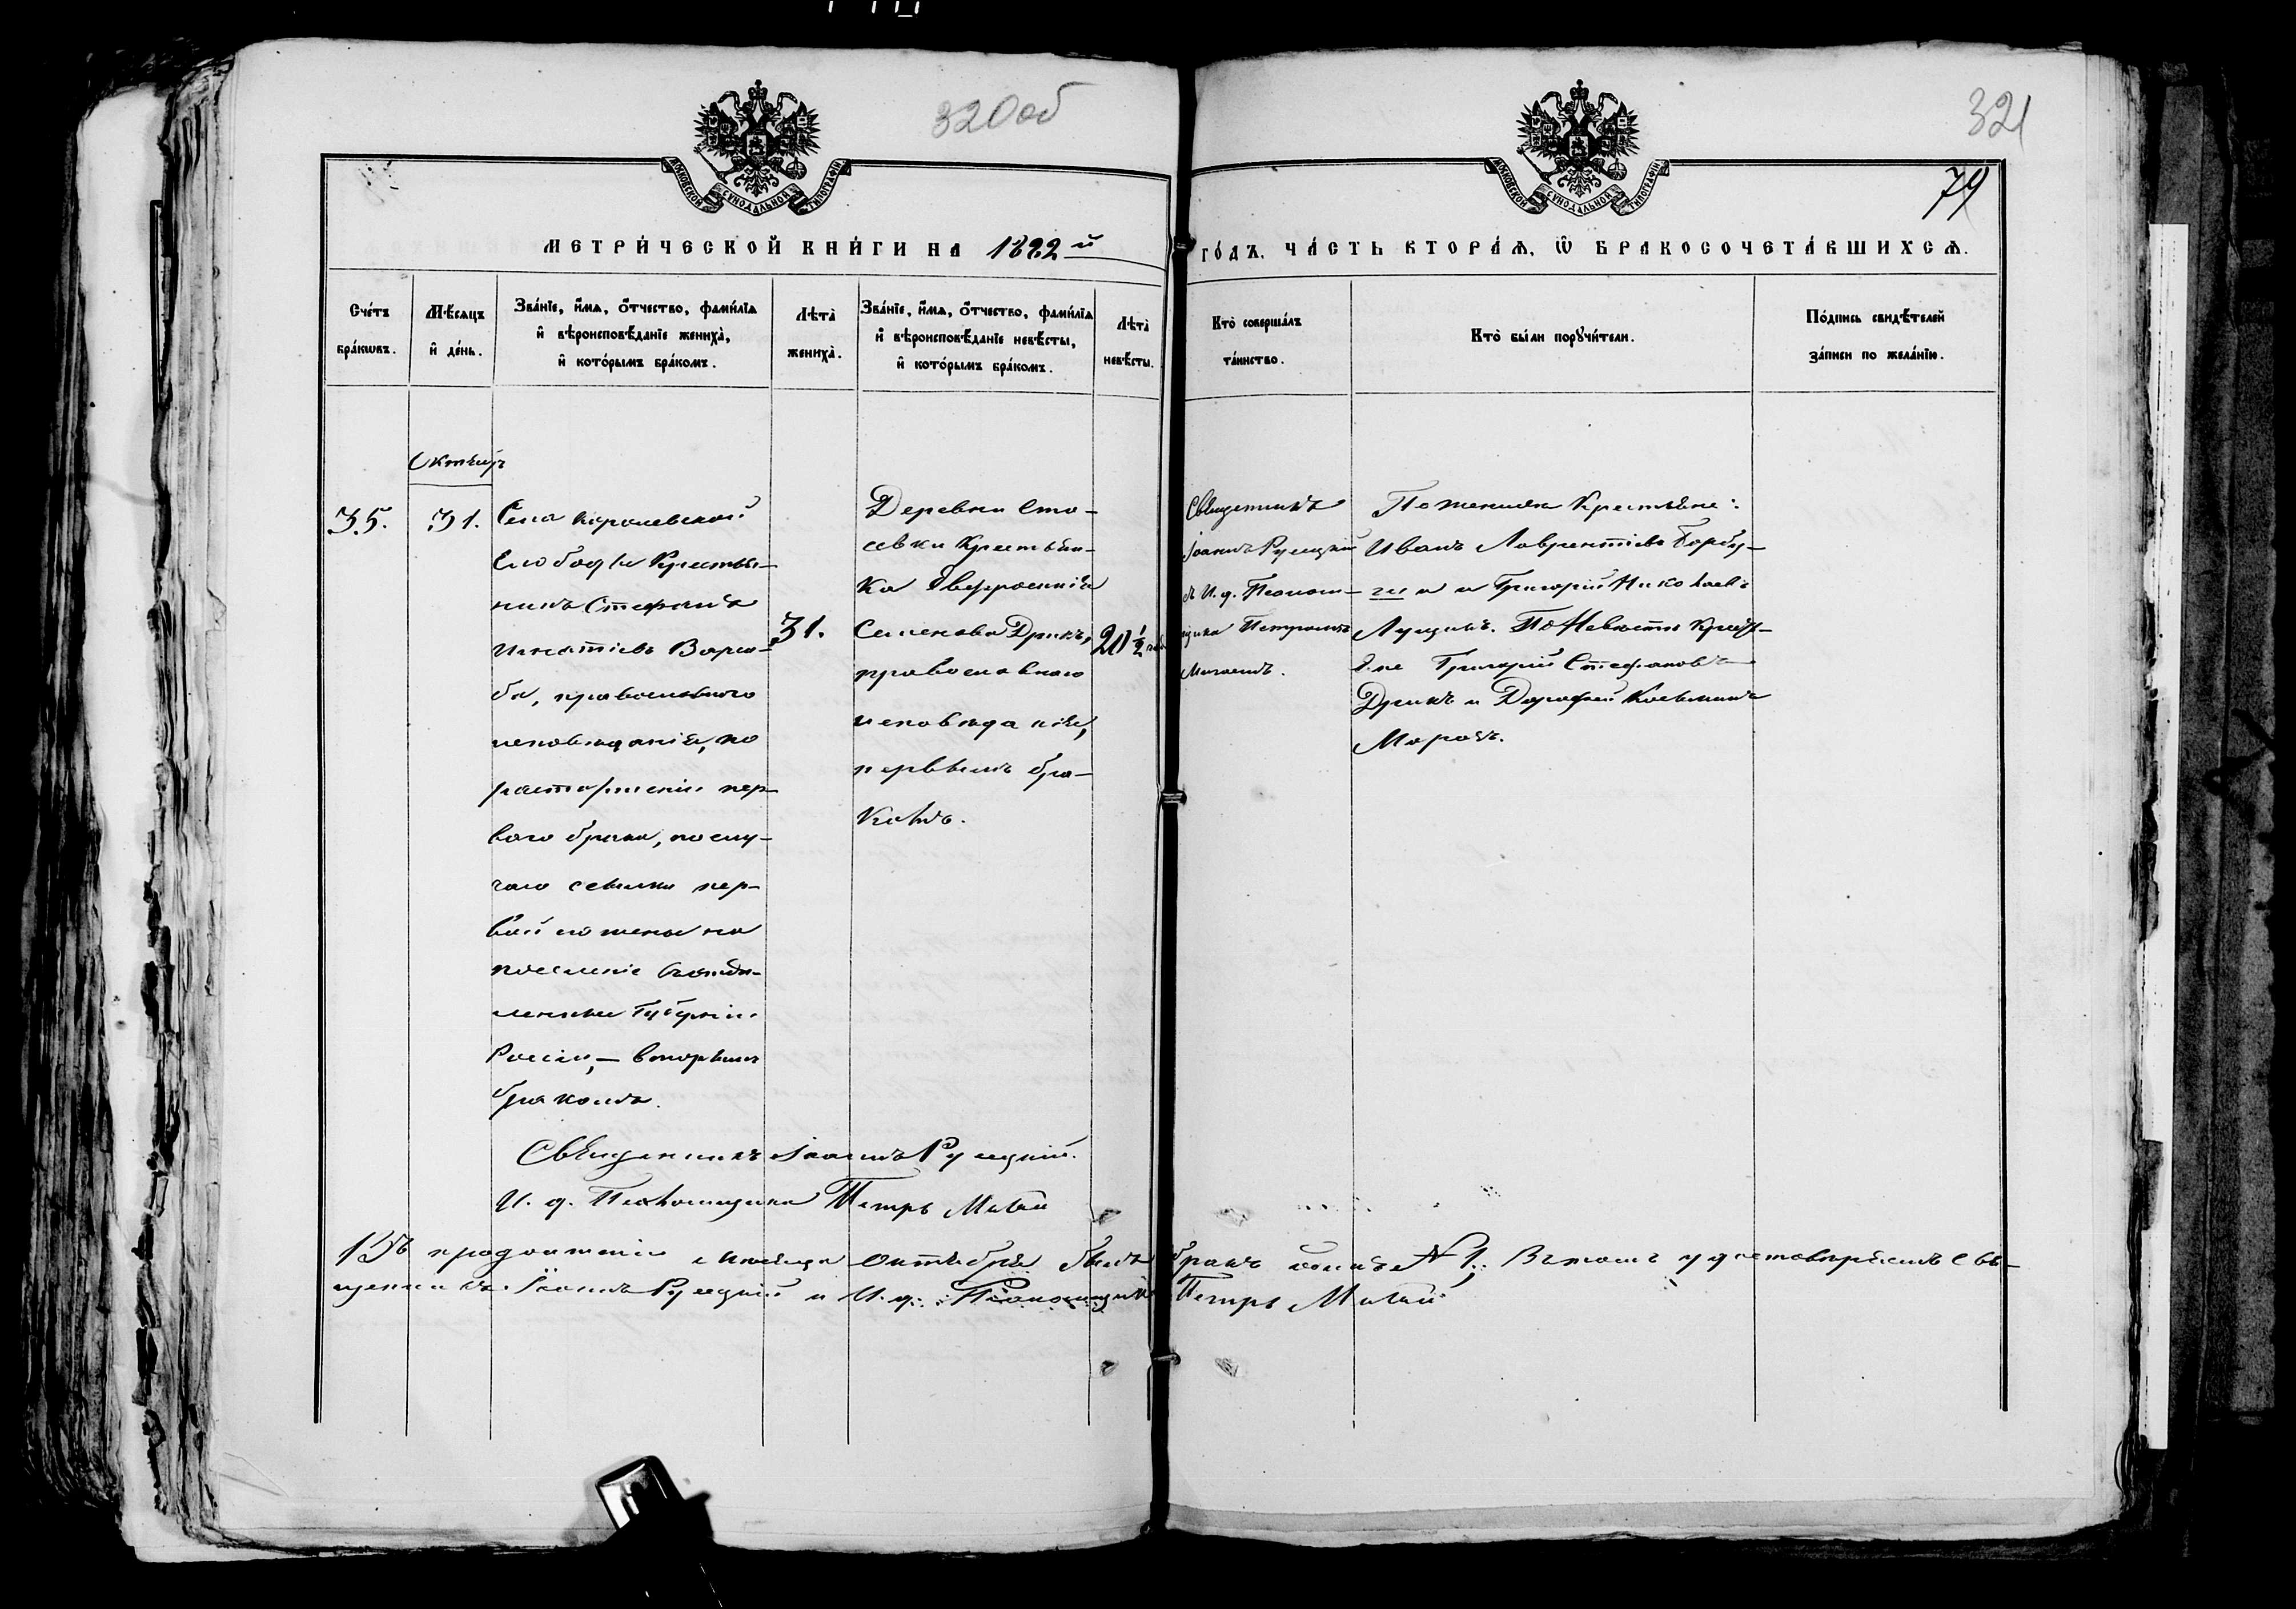 320об
321
79
МОСКОВСКОЙ СѴНОДАЛЬНОЙ ТИПОГРАФІИ
МОСКОВСКОЙ СѴНОДАЛЬНОЙ ТИПОГРАФІИ
МЕТРИ́ЧЕСКОЙ КНИ́ГИ НА 1882й ГО́ДЪ, ЧА́СТЬ ВТОРА́Ѧ, Ѽ БРАКОСОЧЕТА́ВШИХСѦ.
Сче́тъ бра́кѡвъ.
Мѣ́сяцъ и де́нь.
Зва́нїе, и́мѧ, о́тчество, фами́лїѧ
и вѣроисповѣ́данїе жениха̀,
и кото́рымъ бра́комъ.
Лѣта̀ жениха̀.
Зва́нїе, и́мѧ, о́тчество, фами́лїѧ
и вѣроисповѣ́данїе невѣ́сты,
и кото́рымъ бра́комъ.
Лѣта̀ невѣ́сты.
Кто̀ соверша́лъ
та́инство.
Кто̀ бы́ли порꙋчи́тели.
По́дпись свидѣ́телей
за́писи по жела́нїю.
Октябрь
35.
31.
Села Королевской
Слободы Крестья-
нинъ Стефанъ
Игнатіевъ Вора-
ба, православного
исповѣданія, по
расторженіи пер-
вого брака, по слу-
чаю ссылки пер-
вой его жены на
поселеніе въ отда-
ленные Губерніи
Россіи, — вторымъ
бракомъ.
31.
Деревни
Крестьян-
ка Евфросинія
Семенова Дрикъ,
православного
исповѣданія,
первымъ бра-
комъ.
20 1/2
Священникъ
Іоаннъ Рущкій
съ И. д. Псалом-
щика Петромъ
По женихѣ Крестьяне:
Иванъ Лаврентіевъ
и Григорій Николаевъ
По Невѣстѣ Кресть-
яне Григорій Стефановъ
Дрикъ и Дорофей Косьминъ
Морозъ.
Священникъ Іоаннъ Рущкій.
И. д. Псаломщика Петръ
Въ продолженіи мѣсяца Октября былъ бракъ одинъ № 1; Въ томъ удостовѣряемъ Свя-
щенникъ Іоаннъ Рущкій и И. д. Псаломщика Петръ